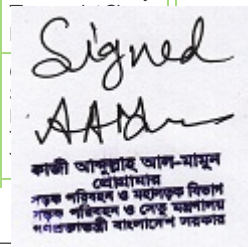 Signed
কাজী আব্দুল্লাহ আল-মামুন
প্রোগ্রামার
সড়ক পরিবহন ও মহাসড়ক বিভাগ
সড়ক পরিবহন ও সেতু মন্ত্রণালয়
গণপ্রজাতন্ত্রী বাংলাদেশ সরকার